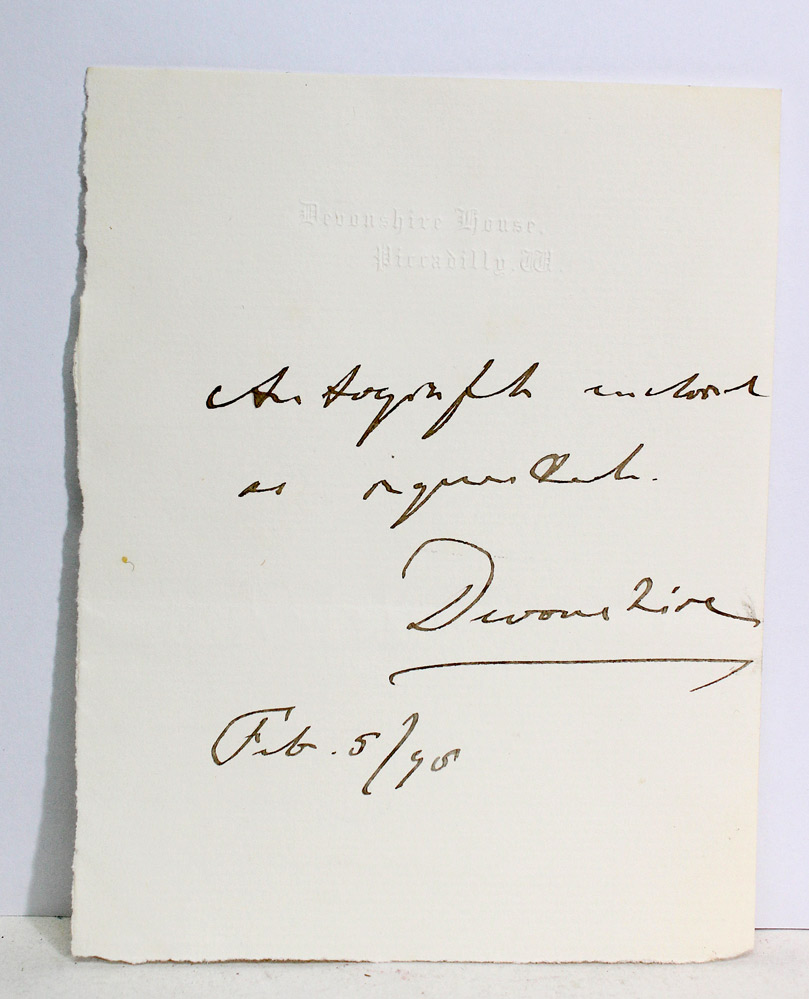 Devonshire House,
Piccadilly. W.
Autograph enclosed
as requested.
Devonshire
Feb. 5/98